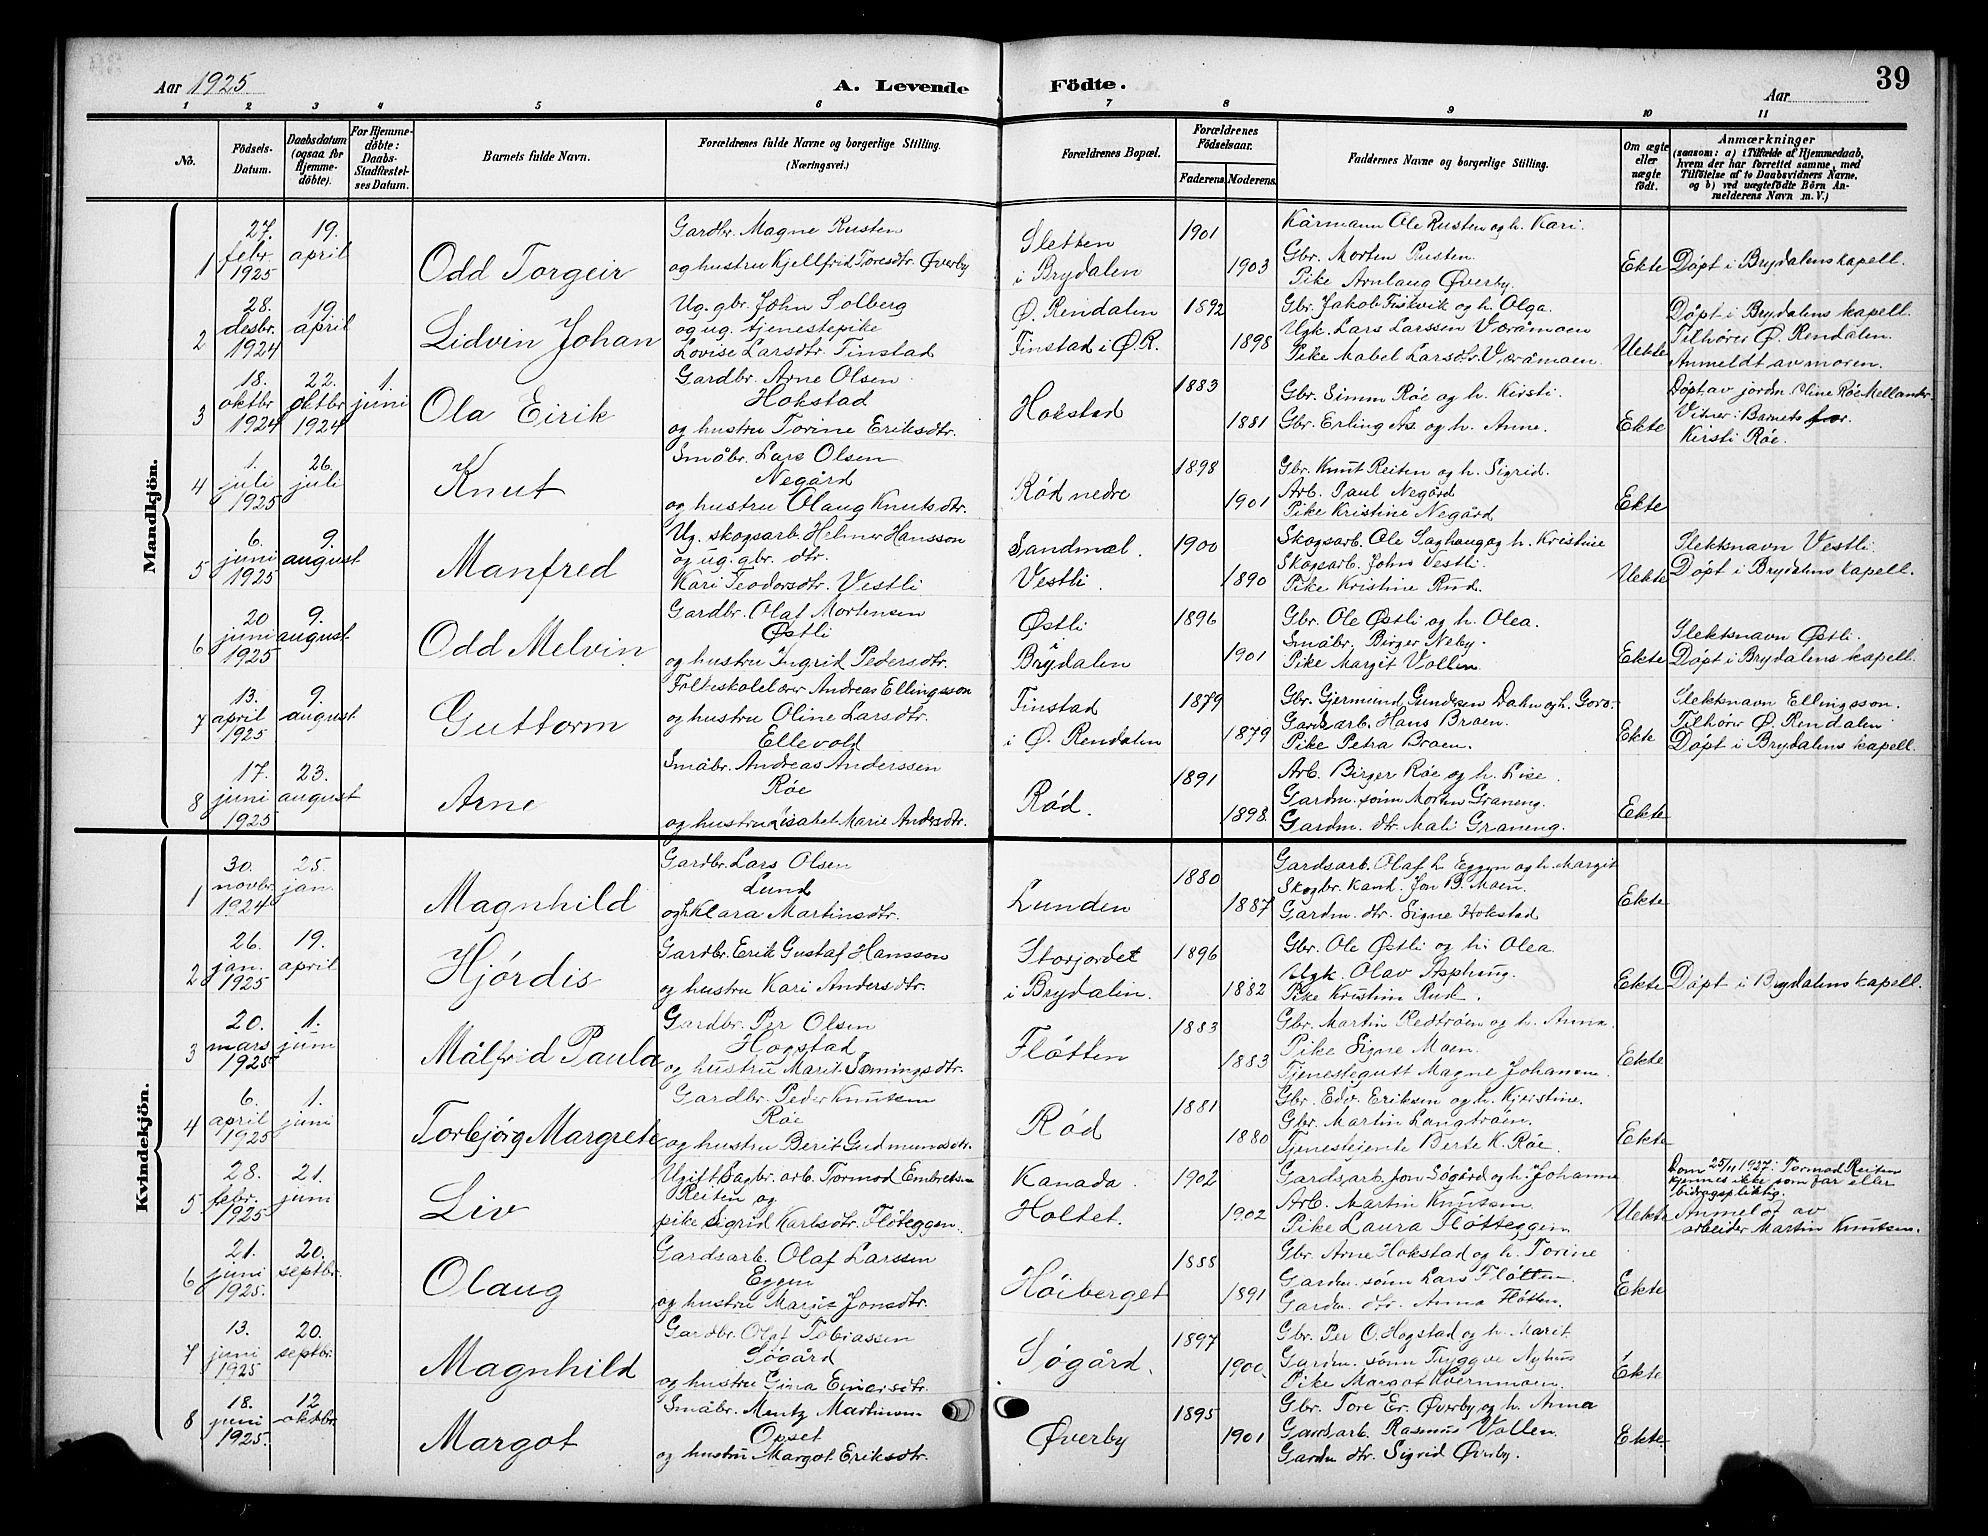 Aar 1925
A. Levende Födte.
39
Aar
1 2 3 4 5 6 7 8 9 10 11
No.
Födsels-Datum.
Daabsdatum (ogsaa for Hjemme-döbte).
For Hjemme-döbte: Daabs-Stadfæstel-ses Datum.
Barnets fulde Navn.
Forældrenes fulde Navne og borgerlige Stilling. (Næringsvei.)
Forældrenes Bopæl.
Forældrenes Födselsaar.
Faderens. Moderens.
Faddernes Navne og borgerlige Stilling.
Om ægte eller uægte födt.
Anmærkninger
(saasom: a) i Tilfælde af Hjemmedaab, hvem der har forrettet samme, med Tilföielse af to Daabsvidners Navne, og b) ved uægtefödte Börn Anmelderens Navn m. V.)
Mandkjön.
1 27. febr. 1925 19. april Odd Torgeir
Gardbr. Magne Rusten
og hustru Kjellfrid Toresdtr. Øverby
Sletten i Brydalen 1901 1903
Kårmann Ole Rusten og h. Kari.
Gbr. Morten Rusten.
Pike Arnlaug Øverby.
Ekte Døpt i Brydalens kapell.
2 28. desbr. 1924 19. april Lidvin Johan
Ug. gbr. John Solberg
og ug. tjenestepike
Lovise Larsdtr. Finstad
Ø. Rendalen
Finstad i Ø.R. 1892 1898
Gbr. Jakob Fiskvik og h. Olga.
Ugk. Lars Larssen Væråmoen
Pike Mabel Larsdtr. Væråmoen.
Uekte
Døpt i Brydalens kapell.
Tilhører Ø. Rendalen.
Anmeldt av moren.
3 18. oktbr 1924 22. oktbr 1924 1. juni Ola Eirik
Gardbr. Arne Olsen
Hokstad
og hustru Torine Eriksdtr.
Hokstad 1883 1881
Gbr. Simen Røe og h. Kirsti.
Gbr. Erling As og h. Anne.
Ekte
Døpt av jordm. Røe Mellander.
Vitner: Barnets far.
Kirsti Røe.
4 1. juli 1925 26. juli Knut
Småbr. Lars Olsen
Negård
og hustru Olaug Knutsdtr.
Rød nedre 1898 1901
Gbr. Knut Reiten og h. Sigrid.
Arb. Paul Negård
Pike Kristine Negård
Ekte
5 6. juni 1925 9. august Manfred
Ug. skogsarb. Helmer Hansson
og ug. gbr. dtr.
Kari Teodorsdtr. Vestli
Sandmæl.
Vestli. 1900 1890
Skogsarb. Ole Saghaug og h. Kristine
Skogsarb. John Vestli.
Pike Kristine Rud.
Uekte
Slektsnavn Vestli.
Døpt i Brydalens kapell.
6 20 juni 1925 9. august Odd Melvin
Gardbr. Olaf Mortensen
Østli
og hustru Ingrid Pedersdtr.
Østli i Brydalen 1896 1901
Gbr. Ole Østli og h. Olea.
Småbr. Birger Neby.
Pike Margit Vollen
Ekte
Slektsnavn Østli.
Døpt i Brydalens kapell.
7 13. april 1925 9. august Guttorm
Folkeskolelærer Andreas Ellingsson
og hustru Oline Larsdtr.
Ellevold
Finstad
i Ø. Rendalen 1879 1879
Gbr. Gjermund Gundersen Dahn og h. Goro.
Gardsarb. Hans Braen.
Pike Petra Braen.
Ekte
Slektsnavn Ellingsson.
Tilhører Ø. Rendalen
Døpt i Brydalens kapell.
8 17. juni 1925 23. august Arne
Småbr. Andreas Anderssen
Røe
og hustru Lisabet Marie Andersdtr.
Rød. 1891 1898
Arb. Birger Røe og h. Lise.
Gardm. sønn Morten Graneng.
Gardm. dtr. Mali Graneng.
Ekte
Kvindekjön.
1 30. novbr. 1924 25. jan. Magnhild
Gardbr. Lars Olsen
Lund
og h. Klara Martinsdtr.
Lunden 1880 1887
Gardsarb. Olaf L Eggen og h. Margit
Skogbr. kand. Jon B. Moen.
Gardm. dtr. Signe Hokstad
Ekte
2 26. jan. 1925 19. april Hjórdis
Gardbr. Erik Gustaf Hansson
og hustru Kari Andersdtr.
Storjordet
i Brydalen. 1896 1882
Gbr. Ole Østli og h. Olea.
Ugk. Olav Asphaug.
Pike Kristine Rud.
Ekte Døpt i Brydalens kapell.
3 20. mars 1925 1. juni Målfrid Paula
Gardbr. Per Olsen
Hogstad
og hustru Marit Sæmingsdtr.
Fløtten 1883 1883
Gbr. Martin Kedtrøen og h. Anna.
Pike Signe Moen.
Tjenestegutt Magne Johansen.
Ekte
4 6. april 1925 1. juni Torbjórg Margrete
Gardbr. Peder Knutsen
Røe
og hustru Berit Gudmundsdtr.
Rød 1881 1880
Gbr. Edv. Eriksen og h. Kjristine.
Gbr. Martin Langtrøen.
Tjenestejente Berte K. Røe.
Ekte
5 28. febr. 1925 21. juni Liv
Ugift Sagbr. arb. Tormod Embretsen
Reiten og
pike Sigrid Karlsdtr. Fløteggen.
Kanada.
Holtet. 1902 1902
Gardsarb. Jon Søgård og h. Johanne
Arb. Martin Knutsen
Pike Laura Fløtteggen.
Uekte
Dom 25/11 1927: Tormod Reiten
kjennes ikke som far eller
bidragspliktig.
Anmeldt av
arbeider Martin Knutsen.
6 21. juni 1925. 20. septbr. Olaug
Gardsarb. Olaf Larssen
Eggen
og hustru Margit Jonsdtr.
Høiberget 1888 1891
Gbr. Arne Hokstad og h. Torine
Gardm. sønn Lars Fløtten.
Gardm. dtr. Anna Fløtten.
Ekte
7 13. juni 1925 20. septbr. Magnhild
Gardbr. Olaf Tobiassen
Søgård
og hustru Gina Einarsdtr.
Søgård. 1897 1900.
Gbr. Per O. Hogstad og h. Marit
Gardm. sønn Tryggve Nyhus
Pike Margot Kvernmoen.
Ekte
8 18. juni 1925. 12 oktbr. Margot
Småbr. Mentz Martinsen
Opset
og hustru Margot Eriksdtr.
Øverby 1895 1901
Gbr. Tore Er. Øverby og h. Anna
Gardsarb. Rasmus Vollen.
Gardm dtr. Sigrid Øverby.
Ekte